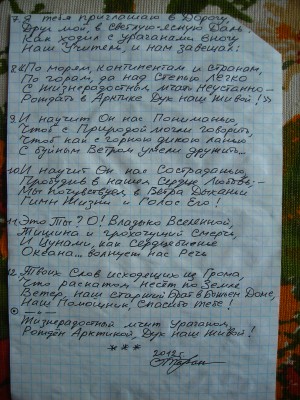 7. Я тебя приглашаю в Дорогу,
Друг мой, в светлую ясную Даль.
Как ходил с ураганами внизу
Наш Учитель, и нам завещал:
8. «По морям, континентам и странам,
По горам, да над Степью легко
С жизнерадостным мчать неустанно –
Рождать в Арктике Дух наш Живой!»
9. И научит Он нас Пониманью,
Чтоб с Природой могли говорить,
Чтоб как с горною дикою ланью
С буйным Ветром умели дружить...
10. И научит Он нас Состраданью,
Пробудив в нашем Сердце Любовь, –
Мы почувствуем в Ветра Дыханьи
Гимн Жизни и Голос Его!
11. Это Ты? О! Владыко Вселенной,
Тишина и грохочущий Смерч,
И Цунами, как Сердцебиение
Океана... волнует нас Речь
12. Твоих Слов исходящих из Грома,
Что раскатом несёт по Земле
Ветер, наш старший Брат в Божьем Доме,
Наш Помощник, Спасибо Тебе!
Жизнерадостный мчит Ураганом,
Рождён Арктикой, Дух наш Живой!
***
2012 г.